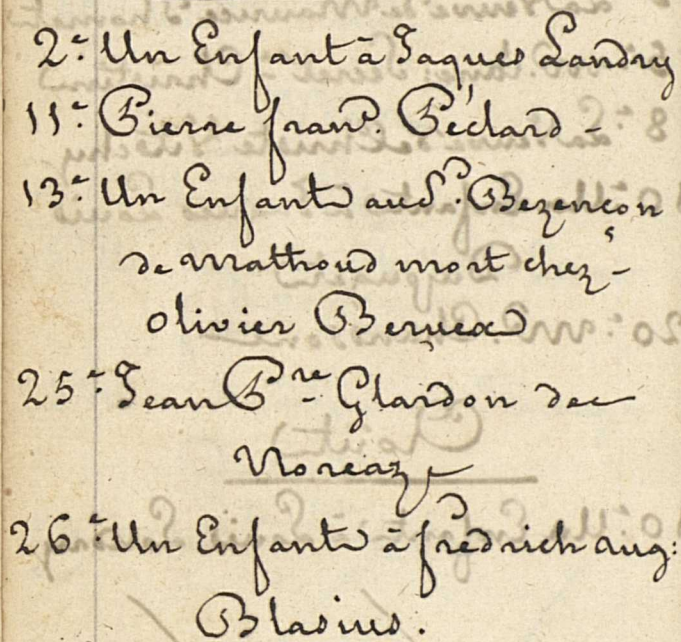 2.e Un Enfant à Jaques Landry
11.e Pierre franç. Péclard -
13.e Un Enfant au Sr. Bezençon
de Mathoud mort chez -
Olivier
25.e Jean Pre Glardon de
Noreaz
26.e Un Enfant à fredrich aug:
Blasius.